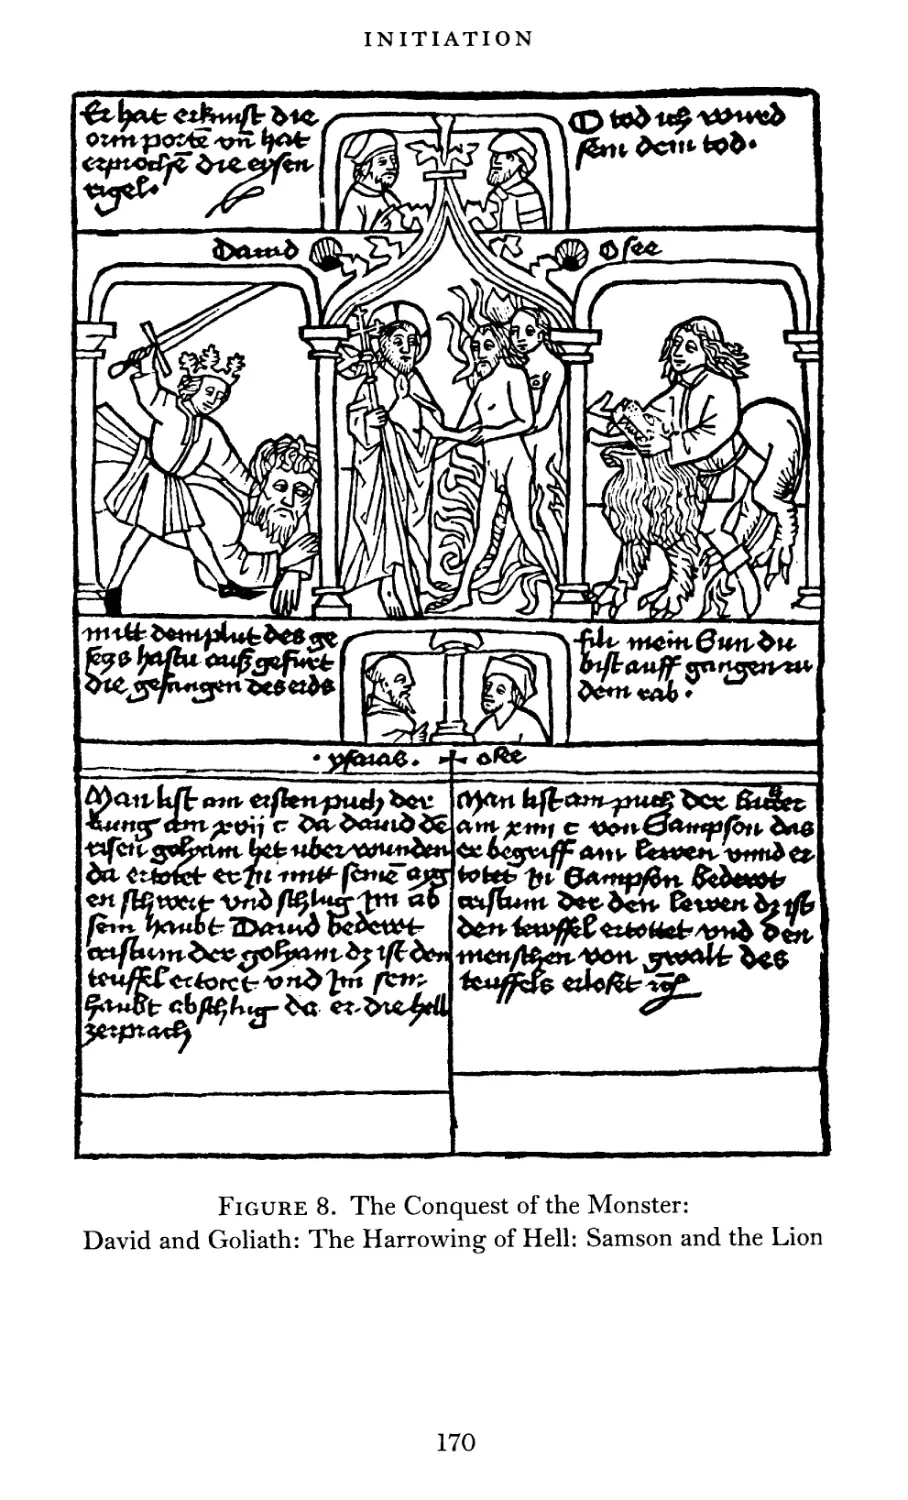 INITIATION
Er hat
die
vn̄ hat
die eysen
rigel.
O tod ich wurd
sein dein tod.
Dauid
Osee
mitt dem plut des ge
hastu auß gefurt
die gefangen des erds
fili mein Sun du
bist auff gangen zu
dem rab.
. ysaias.
Man list am ersten puch der
kung am xvij c da dauid dē
risen golyam het uberwunden
da ertotet er In mitt seinē ayg
en schwert vnd schlug Im ab
sein haubt Dauid bedewt
cristum der golyam dz ist den
teuffel ertotet vnd Im sein
haubt abschlug da er die hell
zerprach
Man list am puch der
am xiiij c von Sampson das
er begriff ain lewen vnnd er
totet In Sampson bedewt
cristum der den lewen dz ist
den tewffel ertottet vnd den
menschen von gwalt des
teuffels erlost
FIGURE 8. The Conquest of the Monster:
David and Goliath: The Harrowing of Hell: Samson and the Lion
170